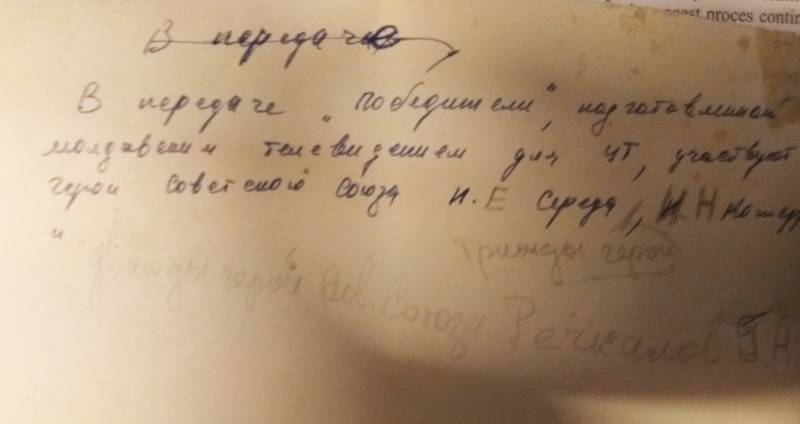 proces contin
В передаче
В передаче „Победители“, подготовленной
молдавским телевидением для ЦТ, участвуют
герои Советского Союза И. Е Середа, И. Н
и
трижды герой
дважды герой Сов. Союза Речкалов Г.А.